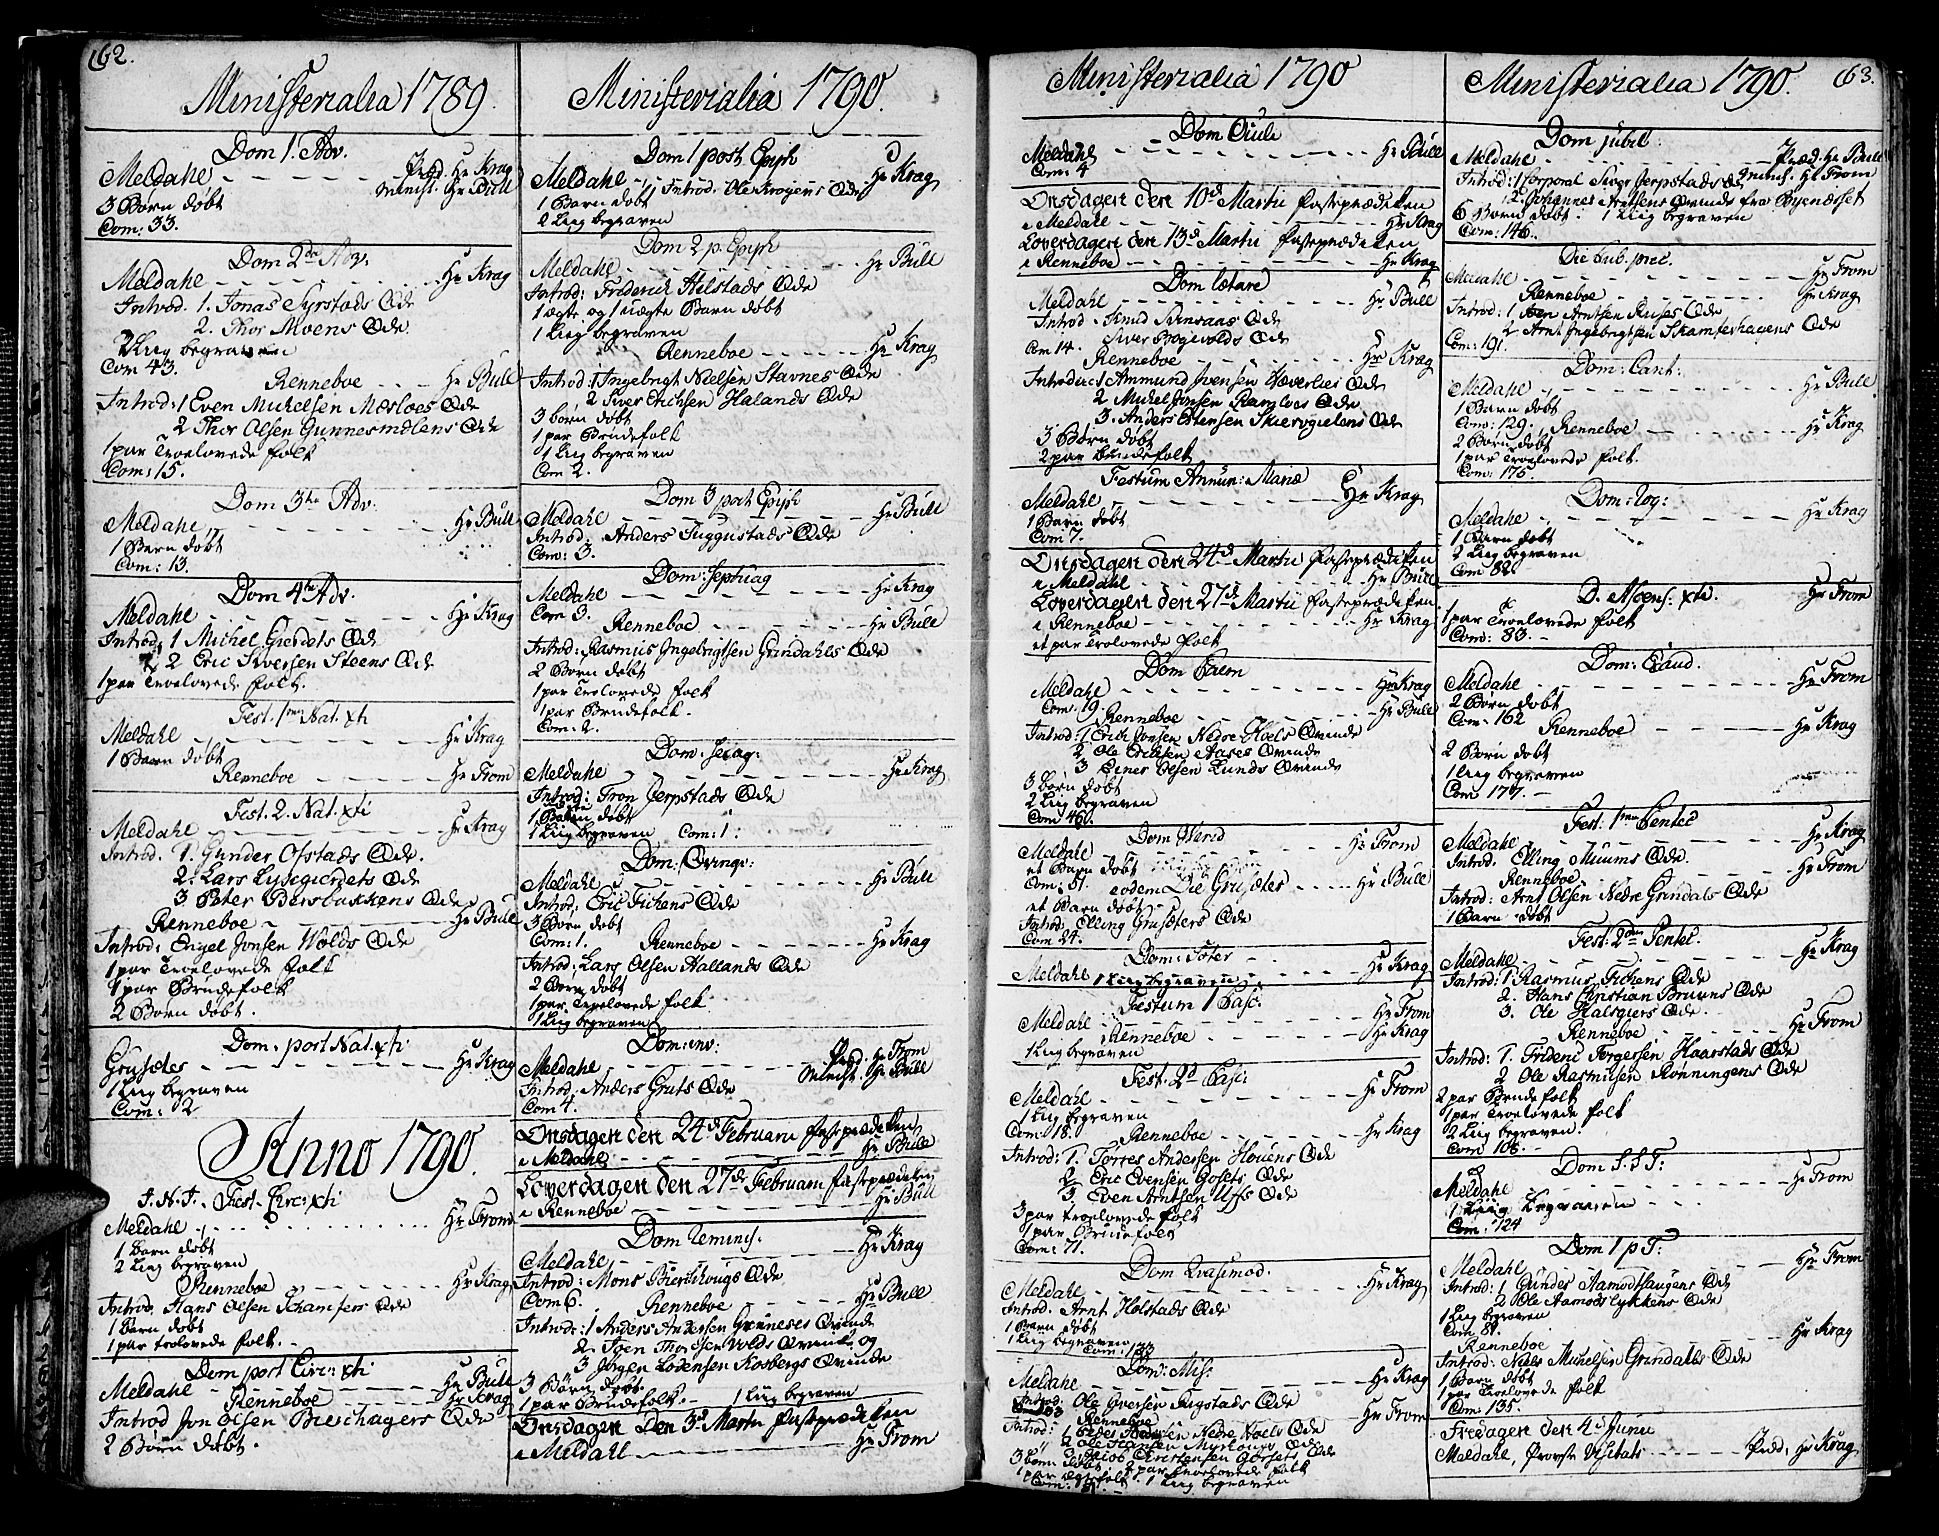 62.
Ministerialia 1789.
Dom 1. Adv.
Meldahl - - - Præd. Hr Krag
Minist. Hr Bull
3 Børn døbt
Com: 33.
Dom 2de Adv.
Meldahl - - - Hr Krag
Introd. 1. Jonas Syrstads Qde
2. Thor Moens Qde
2 Liig begraven
Com 43.
Renneboe - - - Hr Bull
Introd: 1 Even Mickelsen Mærloes Qde
2 Thor Olsen Gunnesmolens Qde
1 par Troelovede folk
Com: 15.
Dom 3tie Adv.
Meldahl - - - Hr Bull
1 Barn døbt
Com: 13.
Dom 4de Adv.
Meldahl - - - Hr Krag
Introd: 1 Michel Gierdets Qde
2 Eric Siversen Steens Qde
1 par Troelovede folk.
Fest. 1me Nat. xti
Meldahl - - - Hr Krag
1 Barn døbt
Renneboe - - - Hr From
Fest. 2. Nat. xti
Meldahl - - - Hr Krag
Introd. 1. Gunder Ofstads Qde.
2. Lars Lysegierdets Qde
3 Peter Bersbakkens Qde
Renneboe - - - Hr Bull
Introd: Engel Jonsen Wolds Qde
1 par Troelovede folk
1 par Brudefolk
2 Børn døbt.
Dom: post Nat. xti
Grusætes - - - Hr Krag
1 Liig begraven
Com: 2
Anno 1790.
J. N. J. Fest. Circ: xti
Meldahl - - - Hr From
1 Barn døbt
2 Liig begraven
Renneboe - - - Hr Krag
Introd. Hans Olsen Skamfers Qde
1 Barn døbt
1 par trolovede folk.
Dom post Circ: xti
Meldahl - - - Hr Bull
Renneboe - - - Hr Krag
Introd Jon Olsen Breskagers Qde
2 Børn døbt.
Ministerialia 1790.
Dom 1 post Epiph
Meldahl - - Hr Krag
1 Introd. Ole Krogens Qde
1 Barn døbt
2 Liig begraven
Dom 2 p. Epiph
Meldahl - - - Hr Bull
Introd: Friderich Hilstads Qde
1 ægte og 1 uægte Barn døbt
1 Liig begraven
Renneboe - - - Hr Krag
Introd: 1 Ingebrigt Nielsen Stavnes Qde
2 Siver Erichsen Halands Qde
3 børn døbt
1 par Brudefolk
1 Liig begraven
Com 2.
Dom 3 post Epiph
Meldahl - - - Hr Bull
Introd. Anders Suggustads Qde
Com: 3.
Dom: Septuag
Meldahl - - - Hr Krag
Com 3.
Renneboe - - - Hr Bull
Introd: Rasmus Ingebrigtsen Grindahls Qde
2 Børn døbt
1 par Troelovede folk
1 par Brudefolk.
Com: 2.
Dom: Sexag:
Meldahl - - - Hr Krag
Introd: Tron Jerpstads Qde
1 Barn døbt
1 Liig begraven Com: 1:
Dom: Qvinqv:
Meldahl - - - Hr Bull
Introd: Eric Fickens Qde
3 Børn døbt
Com: 1.
Renneboe - - - Hr Krag
Introd: Lars Olsen Hallands Qde
2 Børn døbt
1 par Troelovede folk
1 Liig begraven
Dom: inv:
Meldahl - - - Præd: Hr From
Minist: Hr Bull
Introd. Anders Gruts Qde
Com 4.
Onsdagen den 24d Februarii fasteprædiken
i Meldahl - - - Hr Bull
Loverdagen den 27de Februarii fasteprædiken
i Renneboe - - - Hr Bull
Dom Reminis:
Meldahl - - - Hr Krag
Introd: Mons Bierskougs Qde
Com 6.
Renneboe - - - Hr Bull
Introd: 1 Anders Andersen Gunneses Qvinde
2. Joen Thoresen Volds Qvinde og
3 Jørgen Lorensen Kosbergs Qvinde
3 Børn døbt.
1 par Brudefolk. - 1 Liig begraven
Onsdagen den 3d Martii fasteprædiken
i Meldahl - - - Hr From
Ministerialia 1790
Dom Oculi
Meldahl - - - Hr Bull
Com: 4
Onsdagen den 10d Martii fasteprædiken
i Meldahl - - - Hr Krag
Loverdagen den 13d Martii fasteprædiken
i Renneboe - - - Hr Krag
Dom lætare
Meldahl - - - Hr Bull
Introd. Knud Svinsaas Qde
Com 14. Siver Bogevolds Qde
Renneboe - - - Hr Krag
Introduc: 1 Ammund Ivensen Hæverlies Qde
2 Mickel Jonsen Ramloes Qde
3. Anders Estensen Skierogielens Qde
3 Børn døbt
2 par Brudefolk
Festum Annun: Mariæ
Meldahl - - - Hr Krag
1 Barn døbt
Com 7.
Onsdagen den 24d Martii fasteprædiken
i Meldahl - - - Hr Bull
Loverdagen den 27d Martii fasteprædiken
i Renneboe - - - Hr Krag
et par Trolovede folk
Dom Palm
Meldahl - - - Hr Krag
Com: 19.
Renneboe - - - Hr Bull
Introd: 1 Erich Jonsen Nedre Hoels Qvinde
2 Ole Erichsen Aases Qvinde
3 Einer Olsen Lunds Qvinde
3 børn døbt
2 Liig begraven
Com 460.
Dom Virid
Meldahl - - - Hr From
et Barn døbt
Com: 51.
eodem Die Grusæter - - - Hr Bull
et Barn døbt
Introd: Elling Grusæters Qde
Com 24.
Dom: Soter
Meldahl 1 Liig begraven - - Hr Krag
Festum 1 Pasc:
Meldahl - - - Hr From
Renneboe - - - Hr Krag
1 Liig begraven
Fest. 2d Pasc:
Meldahl - - - Hr From
1 Liig begraven
Com: 18.
Renneboe - - - Hr Krag
Introd: 1. Torres Andersen Houens Qde
2 Eric Evensen Gosets Qde
3. Even Arntsen Uffs Qde
3 par troelovede folk
1 par Brudefolk
Com: 71.
Dom Qvasimod.
Meldahl - - - Hr Krag
Introd. Arnt Holstads Qde
1 Barn døbt
1 Liig begraven
Com: 133
Dom: Mis:
Meldahl - - - Hr Krag
Introd: Ole Iversen Rugstads Qde
Renneboe - - - Hr From
Introd: 1 Peder Hansen Nedre Hoels Qde
2 Ole Hansen Myrtougs Qde
3 Jacob Christensen Gorsets Qde
3 børn døbt 2 par Troelovede folk
1 par ægtefolk. 1 Liig begraven
Com:
Ministerialia 1790.
63.
Dom jubil:
Meldahl - - - Præd. Hr Bull
Minist. Hr From
Introd: 1 Corporal Siver Jerpstads Qde
2. Johannes Aretsens Qvinde fra Byenesset
6 Børn døbt. 1 Liig begraven
Com: 146.
Die Sub. prec.
Meldahl - - - Hr From
Renneboe - - - Hr Krag
Introd: 1 Iven Arntsen Ruses Qde
2 Arnt Ingebrigtsen Skamferhagens Qde
Com: 191.
Dom: Cant:
Meldahl - - - Hr Bull
1 Barn døbt
Com: 129.
Renneboe - - - Hr Krag
2 Børn døbt
1 par Troelovede folk.
Com: 175.
Dom: rog:
Meldahl - - - Hr Krag
1 Barn døbt
2 Liig begraven
Com 82.
D. Ascens. xti.
Hr From
1 par Troelovede folk
Com: 83. -
Dom: Exaud.
Meldahl - - - Hr From
2 Børn døbt
Com: 162
Renneboe - - - Hr Krag
2 Børn døbt
1 Liig begraven
Com 177. -
Fest: 1me Pentec
Meldahl - - - Hr Krag
Introd. Elling Muums Qde.
Renneboe - - - Hr From
Introd: Arnt Olsen Nedre Grindals Qde
1 Barn døbt
Fest: 2den Pentec.
Meldahl - - - Hr Krag
Introd: 1 Rasmus Fickens Qde
2. Hans Christian Bruuns Qde
3. Ole Halsgiers Qde
Renneboe - - - Hr From
Introd: 1. Frideric Torgersen Haarstads Qde
2 Ole Rasmusen Rønningens Qde
2 par Brudefolk
1 par Troelovede folk
2 Liig begraven.
Com 108. -
Dom S.S.T:
Meldahl - - - Hr From
1 Liig begraven - -
Com: 124
Dom 1 p T:
Meldahl - - - Hr From
Introd: 1 Gunder Aamodshaugens Qde
2 Ole Aamodslykkens Qde
1 Liig begraven
Com 81.
Renneboe - - - Hr Krag
Introd: Niels Mickelsen Grindalls Qde
1 Barn døbt
1 par Troelovede folk
Com 135.
Fredagen den 4d Junii
Meldahl, Provste Visitats - - - Præd, Hr Krag